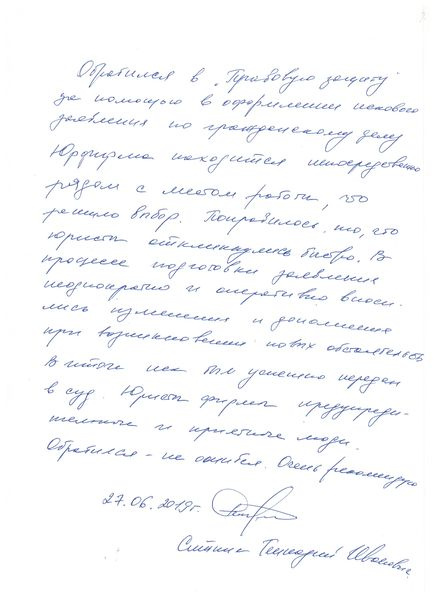 Обратился в "Правовую защиту"
за помощью в оформлении искового
заявления по гражданскому делу
Юрфирма находится непосредственно
рядом с местом работы, что
решило выбор. Понравилось то, что
юристы откликнулись быстро. В
процессе подготовки заявления
неоднократно и оперативно вноси-
лись изменения и дополнения
при возникновении новых обстоятельств
В итоге иск был успешно передан
в суд. Юристы фирмы предупреди-
тельные и приятные люди.
Обратился - не ошибся. Очень рекомендую
27.06.2019г.
Геннадий Иванович